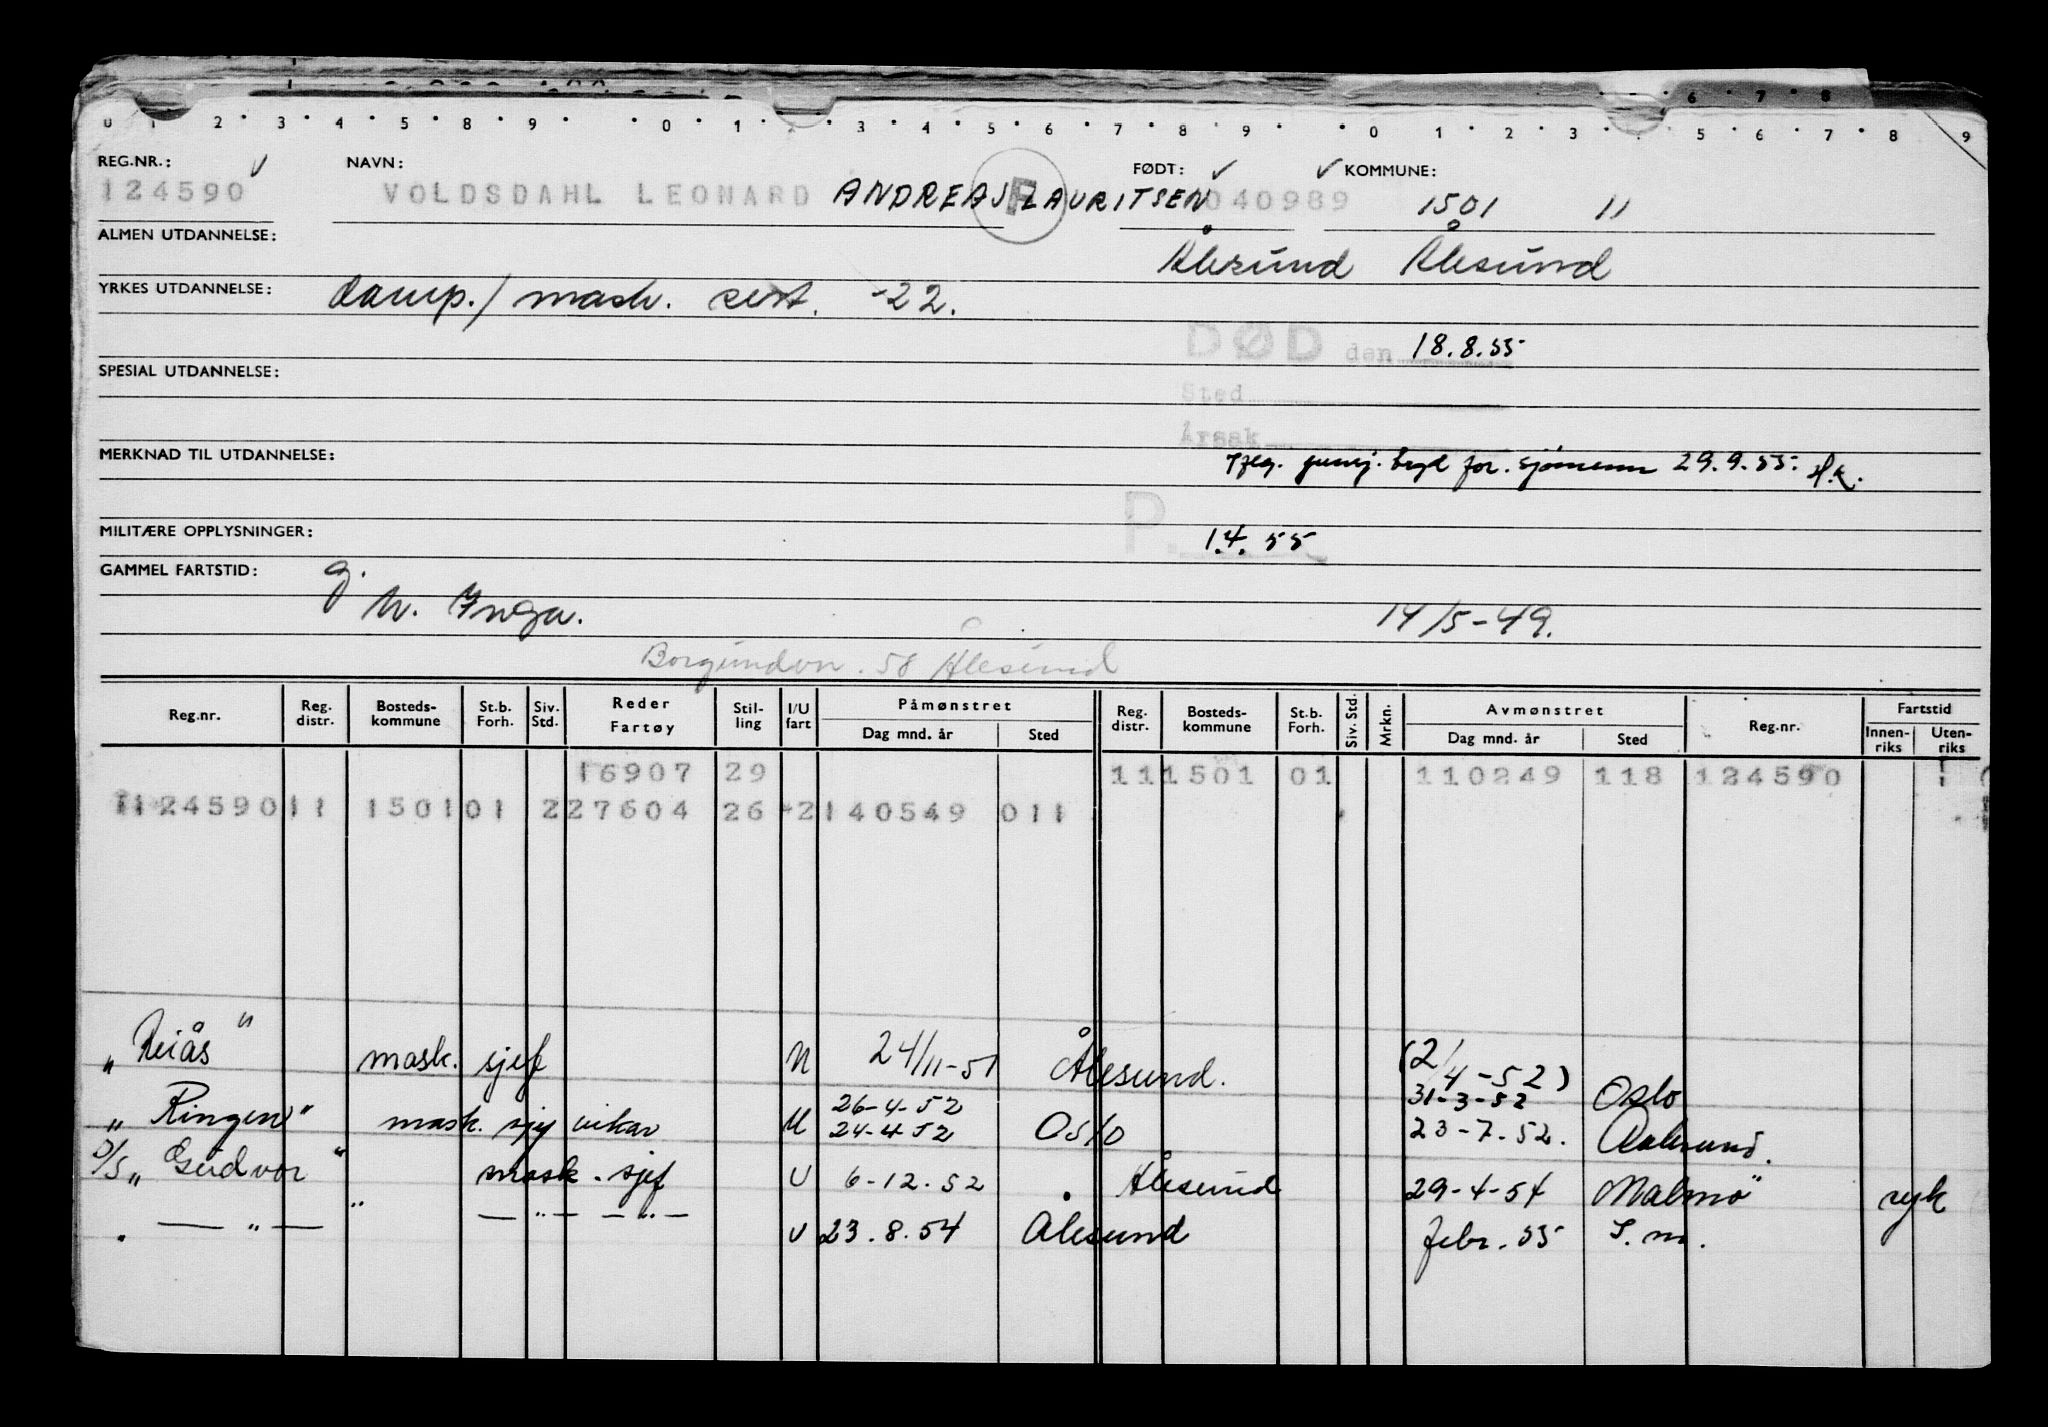 0 1 2 3 4 5 6 8 9 0 1 2 3 4 5 6 7 8 9 0 1 2 3 5 6 7 8 9
REG.NR.: NAVN: FØDT: KOMMUNE:
124590 VOLDSDAHL LEONARD ANDREAS LAURITSEN 040989 1501 11
ALMEN UTDANNELSE: Ålesund Ålesund
YRKES UTDANNELSE: damp./mask. sert. -22.
DØD den 18.8.55
SPESIAL UTDANNELSE:
Sted
Årsak
MERKNAD TIL UTDANNELSE: for. sjømenn 29.9.55. H.K.
MILITÆRE OPPLYSNINGER: P. 1.4.55
GAMMEL FARTSTID: g.
N. Inga. 14/5-49.
Borgundvn. 58 Ålesund
Reg.nr. Reg. distr. Bosteds-kommune St.b. Forh. Siv. Std. Reder Fartøy Stil-ling I/U fart Påmønstret Dag mnd. år Sted Reg. distr. Bosteds-kommune St.b. Forh. Siv. Std. Mrkn. Avmønstret Dag mnd. år Sted Reg.nr. Fartstid Innen-riks Uten-riks
16907 29 11 1501 01 110249 118 124590
124590 11 1501 01 2 27604 26 2 140549 011
„Reiås" mask. sjef N 24/11-51 Ålesund. (2/4-52)
26-4-52 31-3-52 Oslo
„Ringen" mask. sjef vikar U 24-4-52 Oslo 23-7-52. Aalesund.
D/S „Gudvor" mask. sjef U 6-12-52 Ålesund 29-4-54 Malmö syk
— „ — — „ — — „ — U 23.8.54 Ålesund febr. 55 S.m.